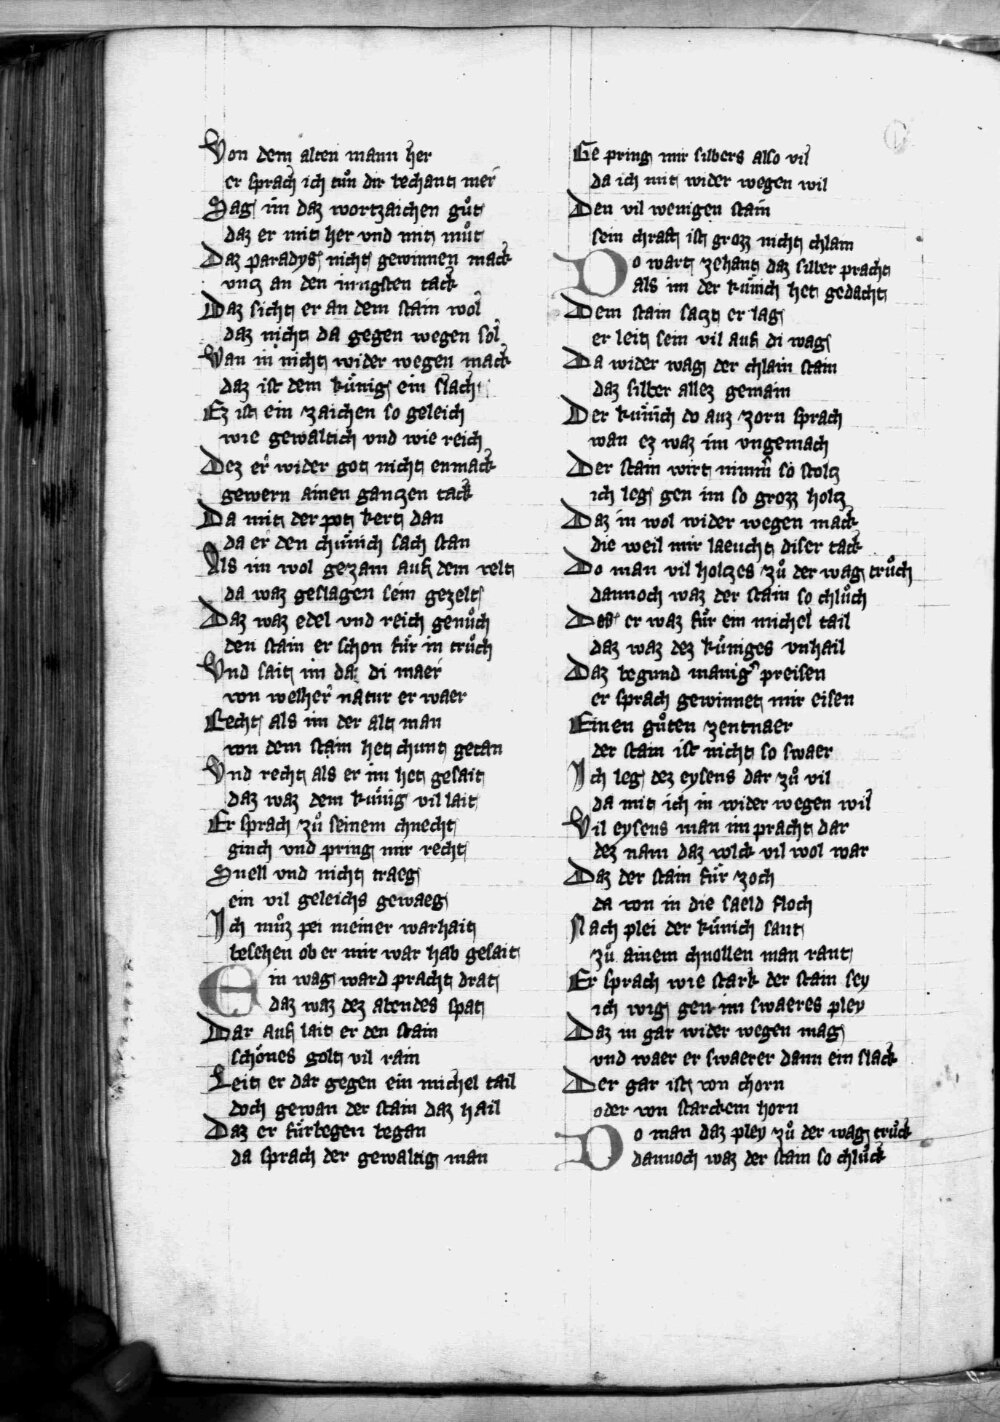 Von dem alten mann her
er sprach ich tuͦn dir bechant mer
Sag im daz wortzaichen guͦt
daz er mit her vnd mit muͦt
Daz paradys nicht gewinnen mack
vncz an den iungsten tack
Daz sicht er an dem stain wol
daz nicht da gegen wegen sol
Wan in nicht wider wegen mack
daz ist dem kuͤnig ein slach
Ez ist ein zaichen so geleich
wie gewaltich vnd wie reich
Dez er wider got nicht enmack
gewern ainen ganczen tack
Da mit der pot kert dan
da er den chuͤnich sach stan
Als im wol gezam auf dem velt
da waz geslagen sein gezelt
Daz waz edel vnd reich genuͦch
den stain er schon fuͤr in truͦch
Vnd sait im da di maer
von welher natur er waer
Recht als im der alt man
von dem stain het chunt getan
Vnd recht als er im het gesait
daz waz dem kuͤnig vil lait
Er sprach zuͦ seinem chnecht
ginch vnd pring mir recht
Snell vnd nicht traeg
ein vil geleichs gewaeg
Ich muͦz pei meiner warhait
besehen ob er mir war hab gesait
Ein wag ward pracht drat
daz waz dez abendes spat
Dar auf lait er den stain
schoͤnes golt vil rain
Leit er dar gegen ein michel tail
doch gewan der stain daz hail
Daz er fuͤrbegen began
da sprach der gewaltig man
Ge pring mir silbers also vil
da ich mit wider wegen wil
Den vil wenigen stain
sein chraft ist grozz nicht chlain
Do wart zehant daz silber pracht
als im der kuͤnich het gedacht
Dem stain saczt er lag
er leit sein vil auf di wag
Da wider wag der chlain stain
daz silber allez gemain
Der kuͤnich do auz zorn sprach
wan ez waz im vngemach
Der stain wirt nimm̄ so stolcz
ich leg gen im so grozz holcz
Daz in wol wider wegen mack
die weil mir laeucht diser tack
Do man vil holczes zuͦ der wag truͦch
dannoch waz der stain so chluͦch
Des er waz fuͤr ein michel tail
daz waz dez kuͤniges vnhail
Daz begund manig' preisen
er sprach gewinnet mir eisen
Einen guͦten zentnaer
der stain ist nicht so swaer
Ich leg dez eysens dar zuͦ vil
da mit ich in wider wegen wil
Vil eysens man im pracht dar
dez nam daz volck vil wol war
Daz der stain fuͤr zoch
da von in die saeld floch
Nach plei der kuͤnich sant
zuͦ ainem chnollen man rant
Er sprach wie stark der stain sey
ich wig gen im swaeres pley
Daz in gar wider wegen mag
vnd waer er swaerer dann ein slack
Der gar ist von chorn
oder von starckem horn
Do man daz pley zuͦ der wag truͦck
dannoch waz der stain so chluͦck